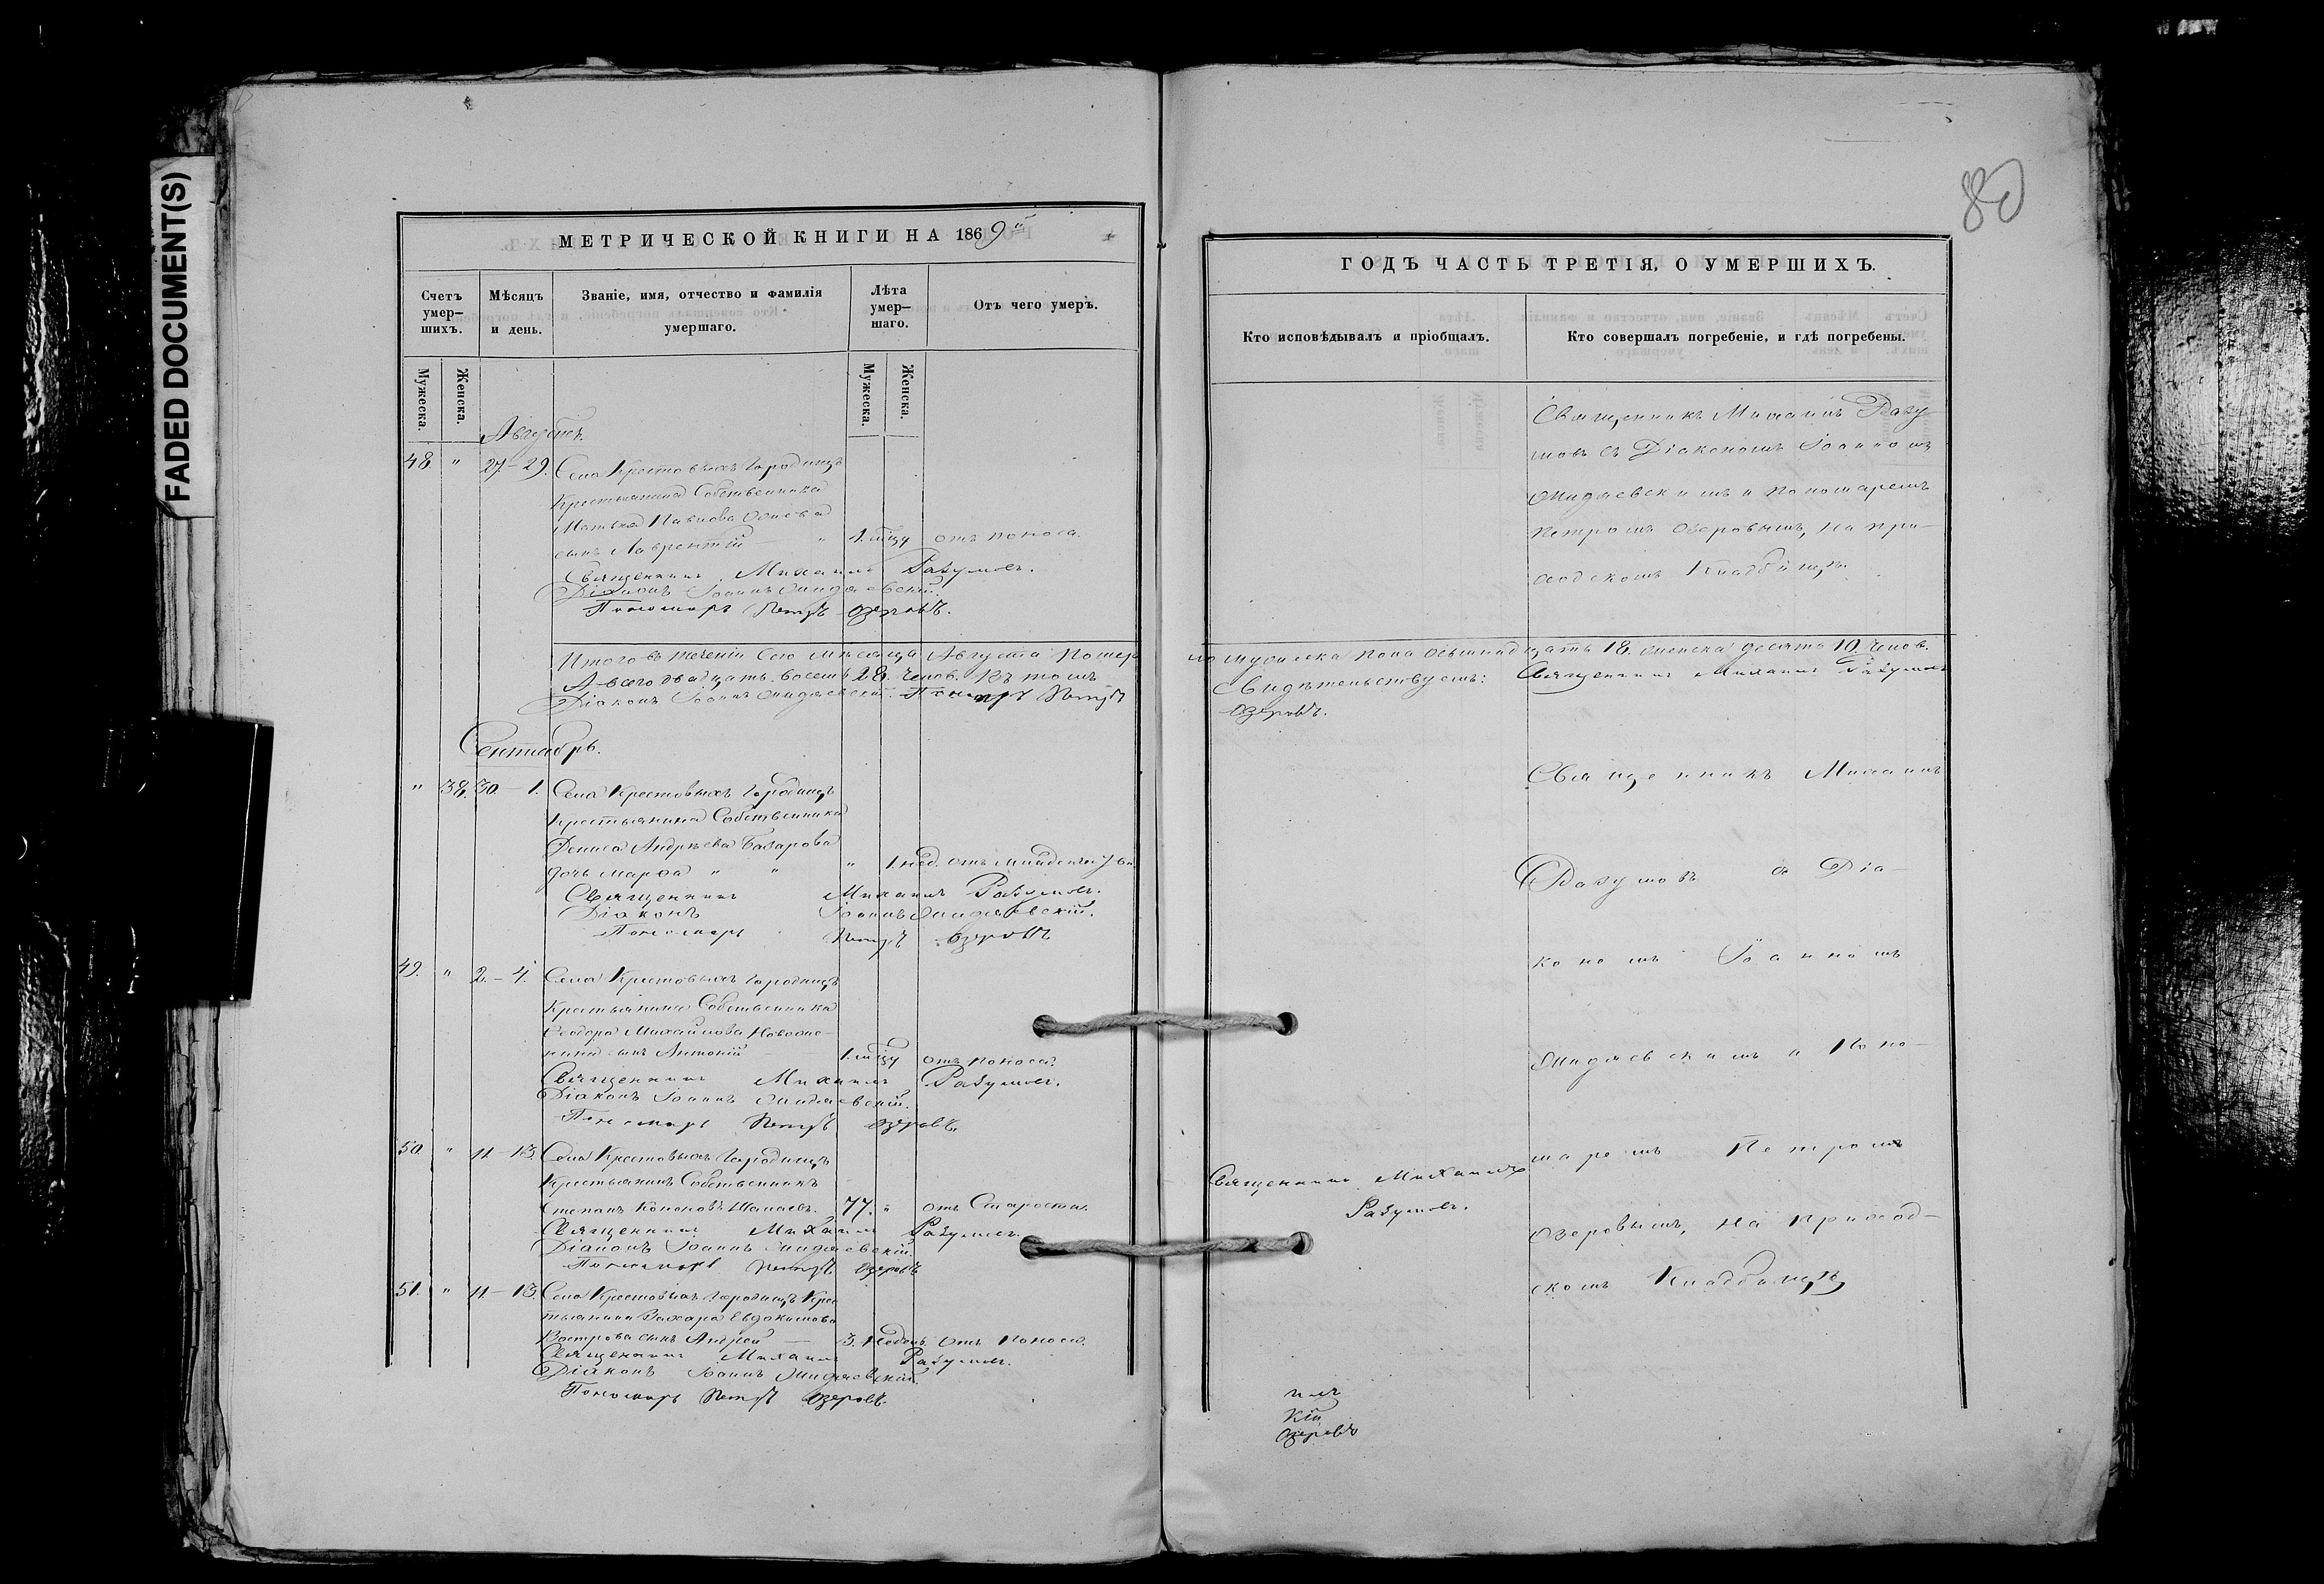 FADED DOCUMENT(S)
МЕТРИЧЕСКОЙ КНИГИ НА 1869й
Счетъ умер-шихъ.
Мѣсяцъ и день.
Званіе, имя, отчество и фамилія умершаго.
Лѣта умер-шаго.
Отъ чего умеръ.
Мужеска.
Женска.
Мужеска.
Женска.
Августъ.
48. " 27.-29. Села Крестовыхъ Городищъ
Крестьянина Собственника
Павлова
сынъ Лаврентій " 1. мцу отъ поноса.
Священникъ Михаилъ Разумовъ.
Діаконъ Іоаннъ
Пономарь Петръ Озеровъ.
Итого въ теченіи сего мѣсяца Августа помер
А всего двадцать восемь 28. челов. Въ томъ
Діаконъ Іоаннъ Пономарь Петръ
Сентябрь.
" 38. 30.-1. Села Крестовыхъ Городищъ
Крестьянина Собственника
Дениса Андрѣева Базарова
дочь Марѳа " " " 1. нед. отъ
Священникъ Михаилъ Разумовъ.
Діаконъ Іоаннъ
Пономарь Петръ Озеровъ
49. " 2.-4. Села Крестовыхъ Городищъ
Крестьянина Собственника
Ѳеодора Михайлова
сынъ Антоній 1. мцу отъ поноса.
Священникъ Михаилъ Разумовъ.
Діаконъ Іоаннъ
Пономарь Петръ Озеровъ.
50. " 11.-13. Села Крестовыхъ Городищъ
Крестьянинъ Собственникъ
Степанъ Кононовъ 77. " отъ Старости.
Священникъ Михаилъ Разумовъ.
Діаконъ Іоаннъ
Пономарь Петръ Озеровъ
51. " 11.-13. Села Крестовыхъ Городищъ Крес
тьянина Захара Евдокимова
Вострова сынъ Андрей — 3. недель. Отъ поноса.
Священникъ Михаилъ Разумовъ.
Діаконъ Іоаннъ
Пономарь Петръ Озеровъ.
80
ГОДЪ ЧАСТЬ ТРЕТІЯ, О УМЕРШИХЪ.
Кто исповѣдывалъ и пріобщалъ.
Кто совершалъ погребеніе, и гдѣ погребены.
Священникъ Михаилъ Разу-
мовъ съ Діакономъ Іоанномъ
и пономаремъ
Петромъ Озеровымъ, на при-
ходскомъ Кладбищѣ.
ло мужеска пола осьмнадцать 18. женска десять 10. челов.
Свидѣтельствуемъ: Священникъ Михаилъ Разумовъ
Озеровъ.
Священникъ Михаилъ
Разумовъ съ Діа-
кономъ Іоанномъ
и Поно-
маремъ Петромъ
Священникъ Михаилъ
Разумовъ.
Озеровымъ, на приход-
скомъ Кладбищѣ
илъ
кій
Озеровъ